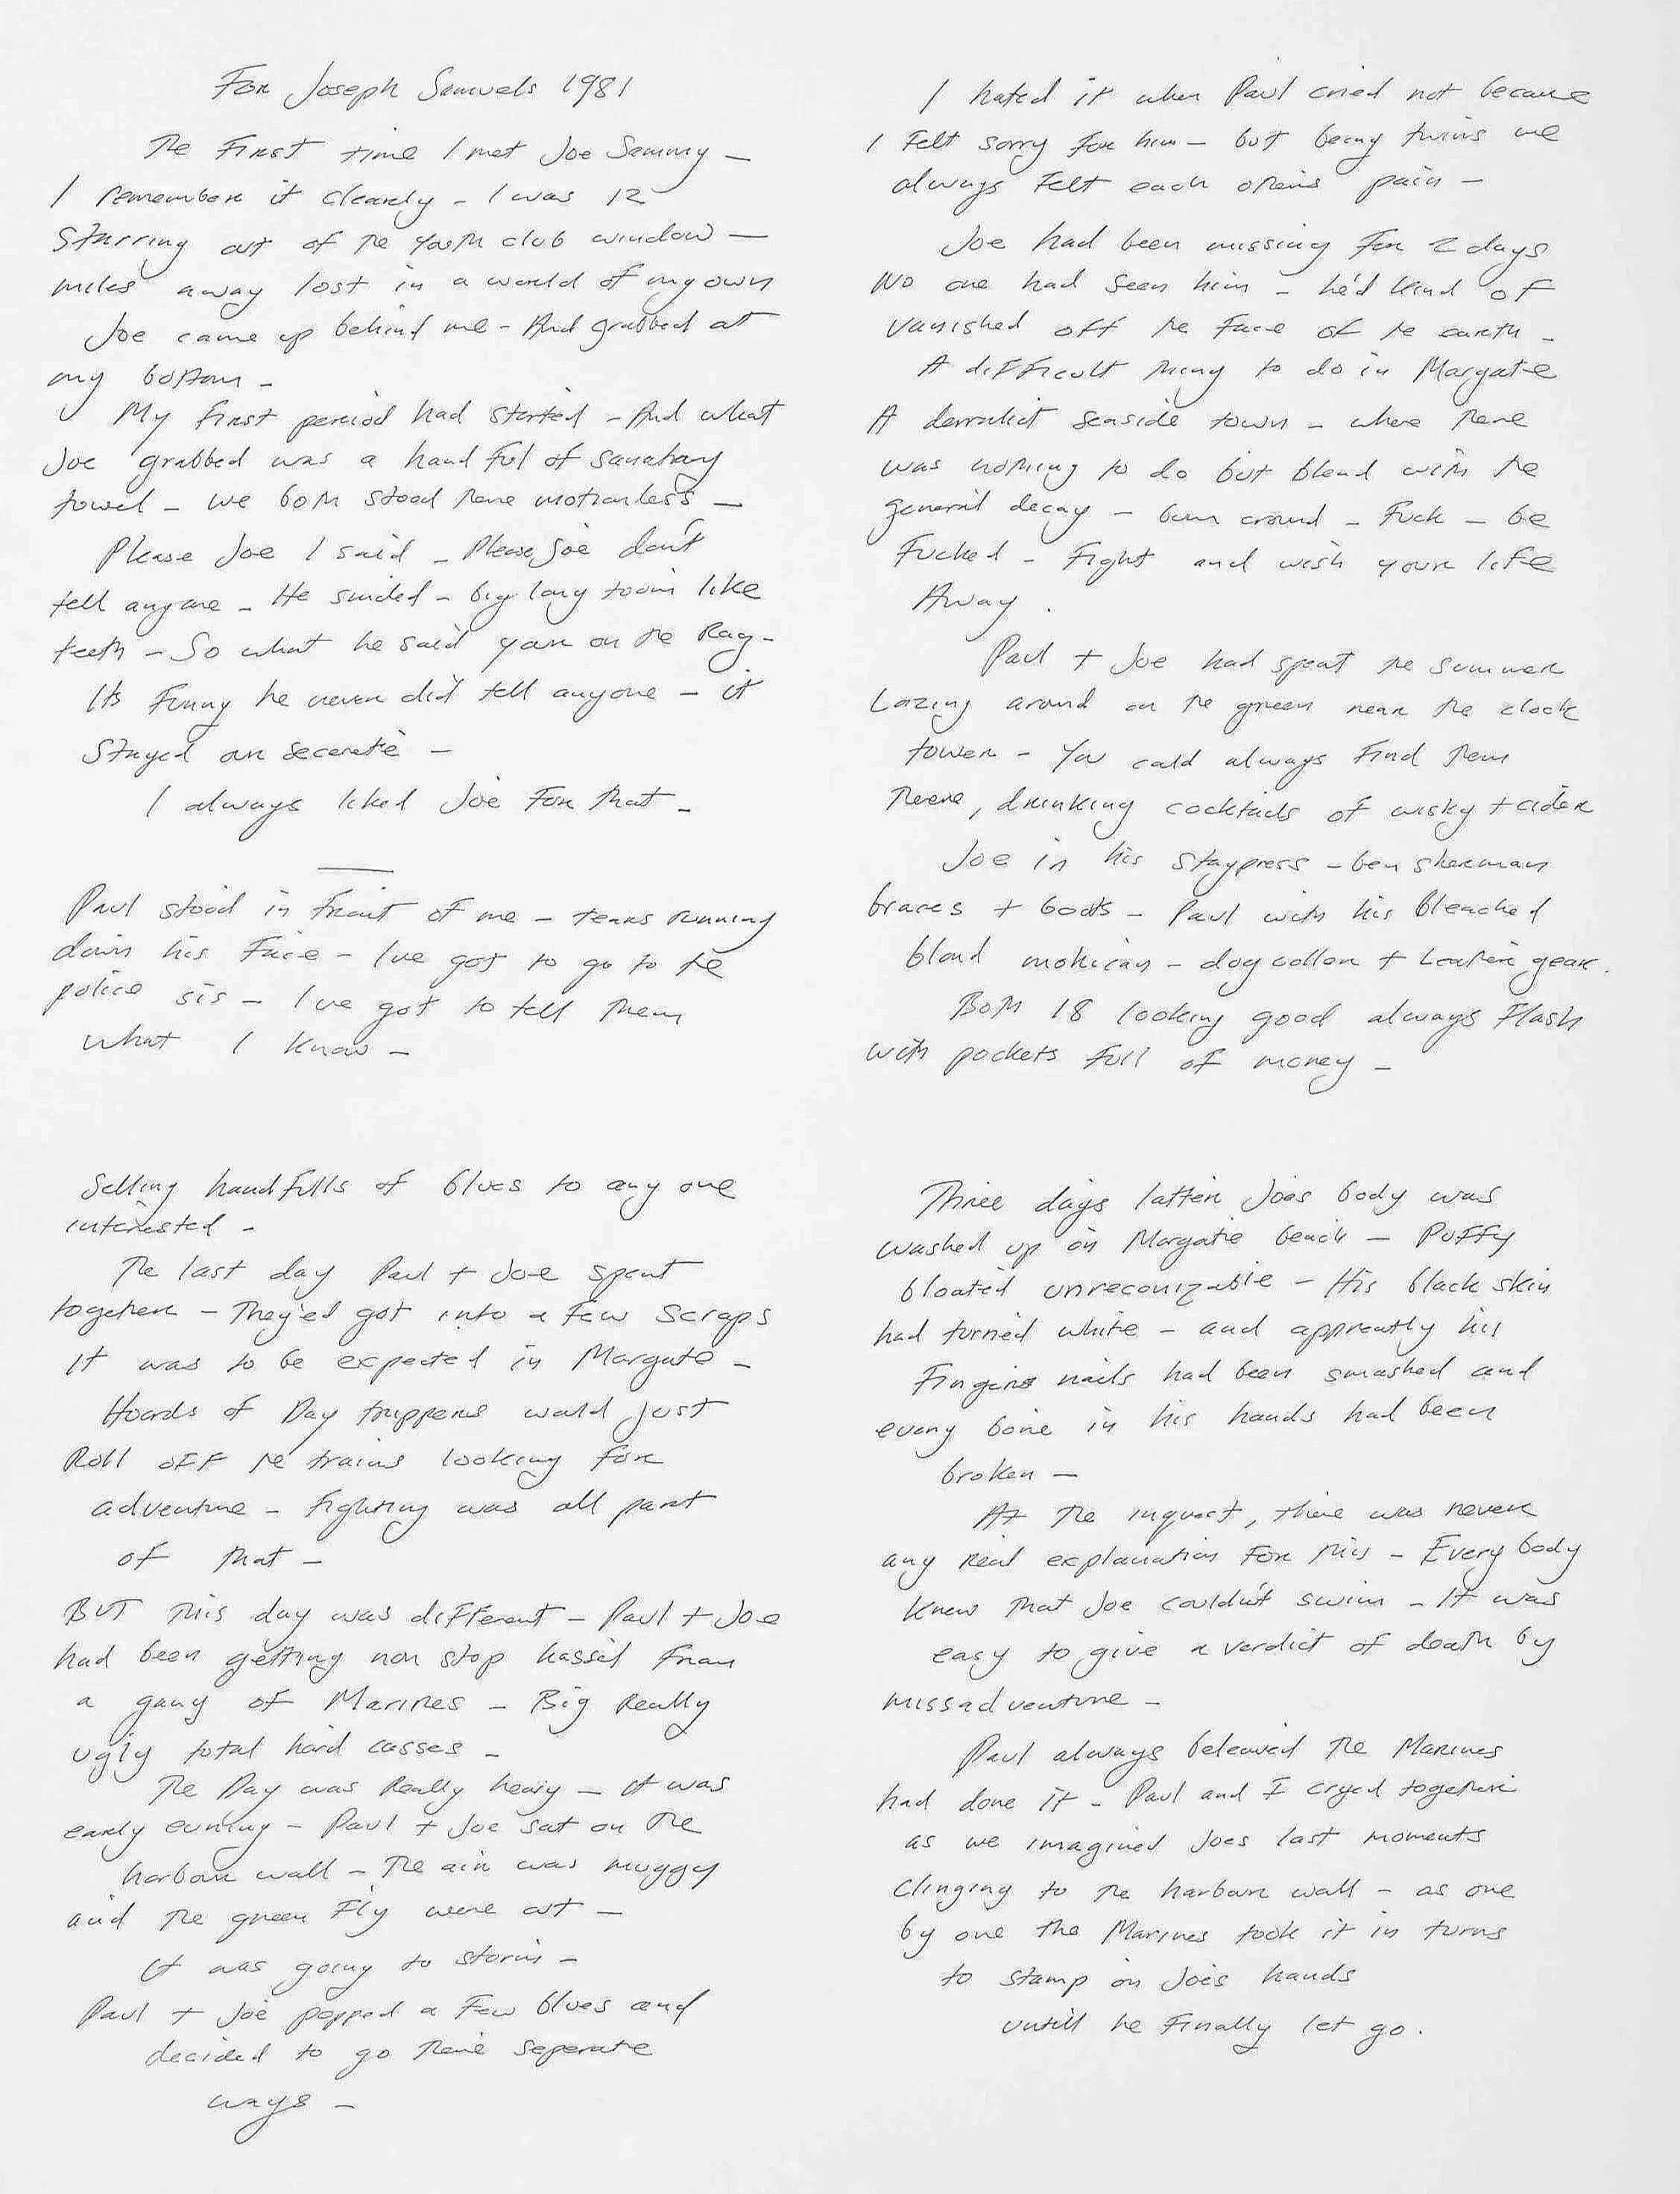 For Joseph Samuels 1981
The First time I met Joe Sammy –
I remember it clearly – I was 12
Starring out of the youth club window –
miles away lost in a world of my own
Joe came up behind me – And grabbed at
my bottom –
My first period had started – And what
Joe grabbed was a hand ful of sanatary
towel – we both stood there motionless –
Please Joe I said – Please Joe don't
tell anyone – He smiled – big long tooth like
teeth – So what he said your on the Rag –
Its Funny he never did tell anyone – it
Stayed our secerete –
I always liked Joe For that –
Paul stood in front of me – tears running
down his Face – Ive got to go to the
police sis – I've got to tell them
what I know –
I hated it when Paul cried not because
I Felt sorry for him – but being twins we
always Felt each others pain –
Joe had been missing for 2 days
No one had seen him – he'd kind of
vanished off the Face of the earth –
A difficult thing to do in Margate
A derralict seaside town – where there
was nothing to do but blend with the
general decay – bum around – Fuck – be
Fucked – Fight and wish your life
Away .
Paul + Joe had spent the summer
Lazing around on the green near the clock
tower – You could always Find them
There, drinking cocktails of wisky + cider
Joe in his staypress – ben sherman
braces + boots – Paul with his bleached
blond mohican – dog collar + Leather gear.
Both 18 looking good always Flash
with pockets full of money –
Selling handfulls of blues to any one
interested –
The last day Paul + Joe spent
together – They'ed got into a few scraps
It was to be expected in Margate –
Hoards of Day trippers would just
Roll off the trains looking for
adventure – Fighting was all part
of that –
BUT this day was different – Paul + Joe
had been getting non stop hassel from
a gang of Marines – Big Really
ugly total hard casses –
The Day was Really heavy – It was
early evning – Paul + Joe sat on the
harbour wall – The air was muggy
and the green Fly were out –
It was going to storm –
Paul + Joe popped a Few blues and
decided to go there seperate
ways –
Three days latter Joes body was
washed up on Margate beach – Puffy
bloated unreconizable – His black skin
had turned white – and apprently his
Fingers nails had been smashed and
every bone in his hands had been
broken –
At the inquest, there was never
any real explanation For this – Every body
knew that Joe couldn't swim – It was
easy to give a verdict of death by
missadventure –
Paul always beleaved the Marines
had done it – Paul and I cryed together
as we imagined Joes last moments
Clinging to the harbour wall – as one
by one the Marines took it in turns
to stamp on Joes hands
untill he Finally let go.